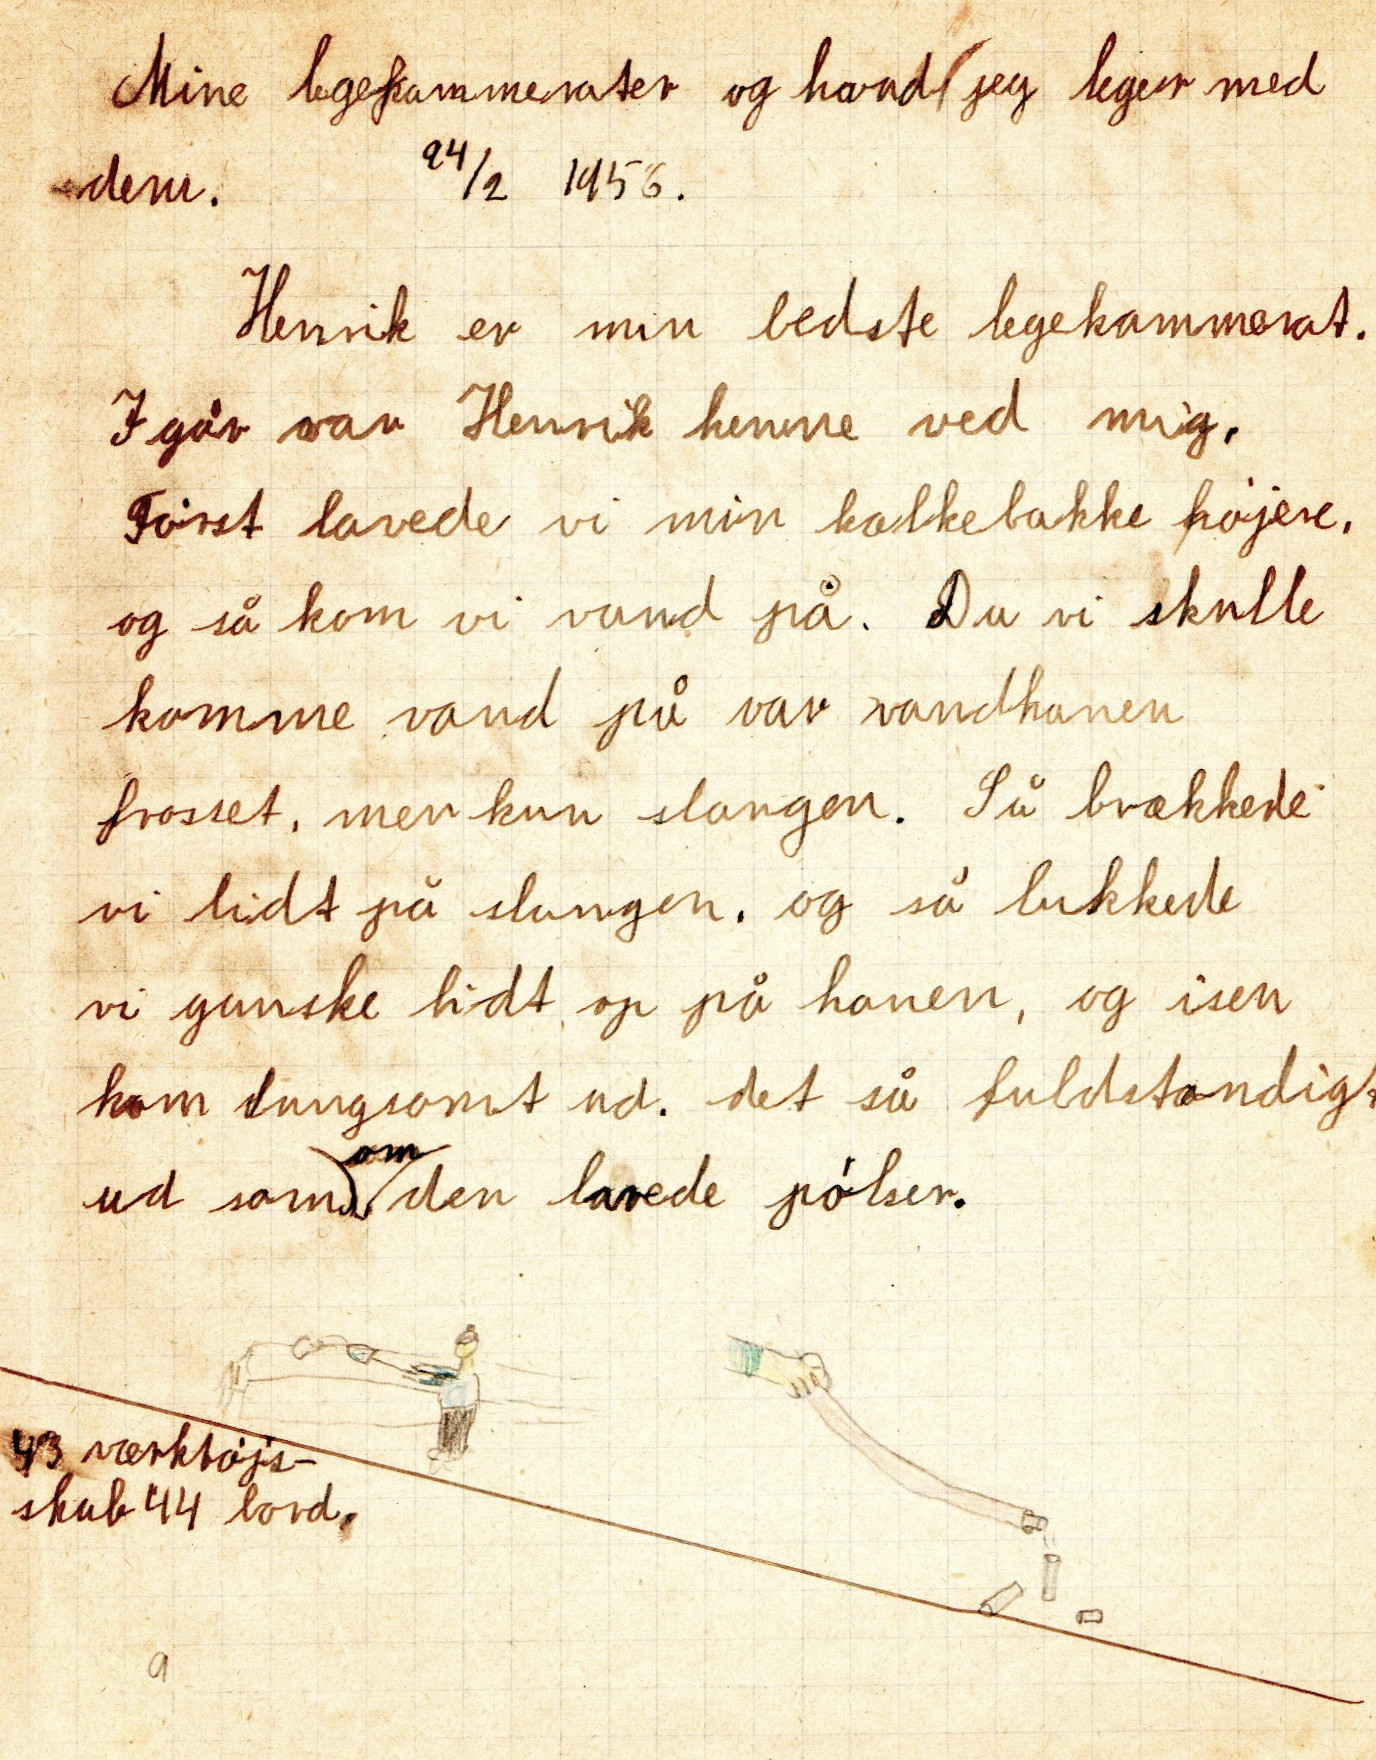 Mine legekammerater og hvad jeg leger med
dem. 24/2 1956.
Henrik er min bedste legekammerat.
I går var Henrik henne ved mig.
Først lavede vi min kælkebakke højere.
og så kom vi vand på. Da vi skulle
komme vand på var vandhanen
frosset, men kun slangen. Så brækkede
vi lidt på slangen. og så lukkede
vi ganske lidt op på hanen, og isen
kom langsomt ud. det så fuldstændigt
om
ud som den lavede pølser.
43 værktøjs-
skab 44 bord.
9